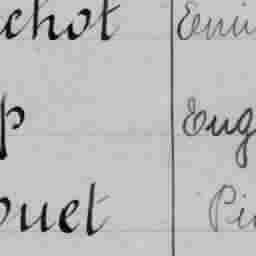 chot Emi
p Eug
ouet Pi